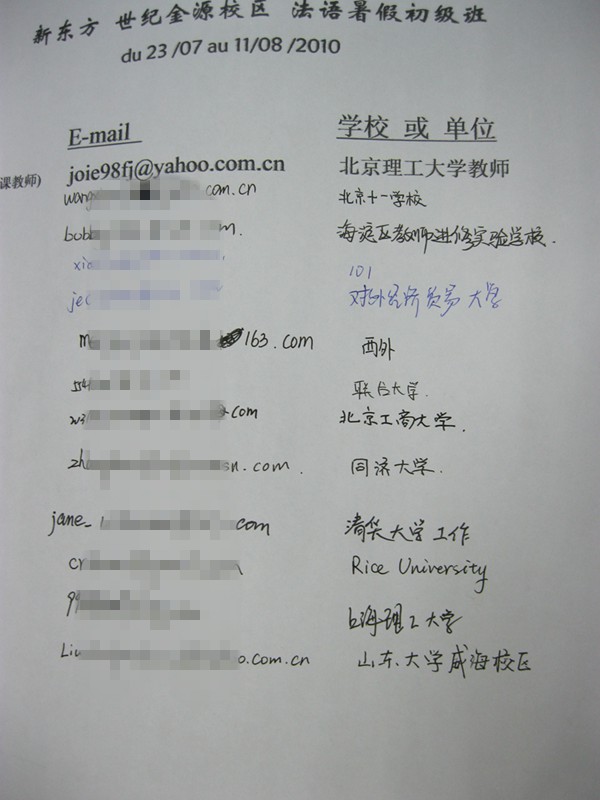 新东方 世纪金源校区 法语暑假初级班
du 23 /07 au 11/08 /2010
E-mail 学校 或 单位
课教师) joie98fj@yahoo.com.cn 北京理工大学教师
wang .com.cn 北京十一学校
bobb m. 海淀区教师进修实验学校.
xia 101
je 对外经济贸易大学
m 163.com 西外
联合大学.
com 北京工商大学.
zh sn.com. 同济大学.
jane_ com 清华大学工作
cr Rice University
99 上海理工大学
Liu o.com.cn 山东大学威海校区